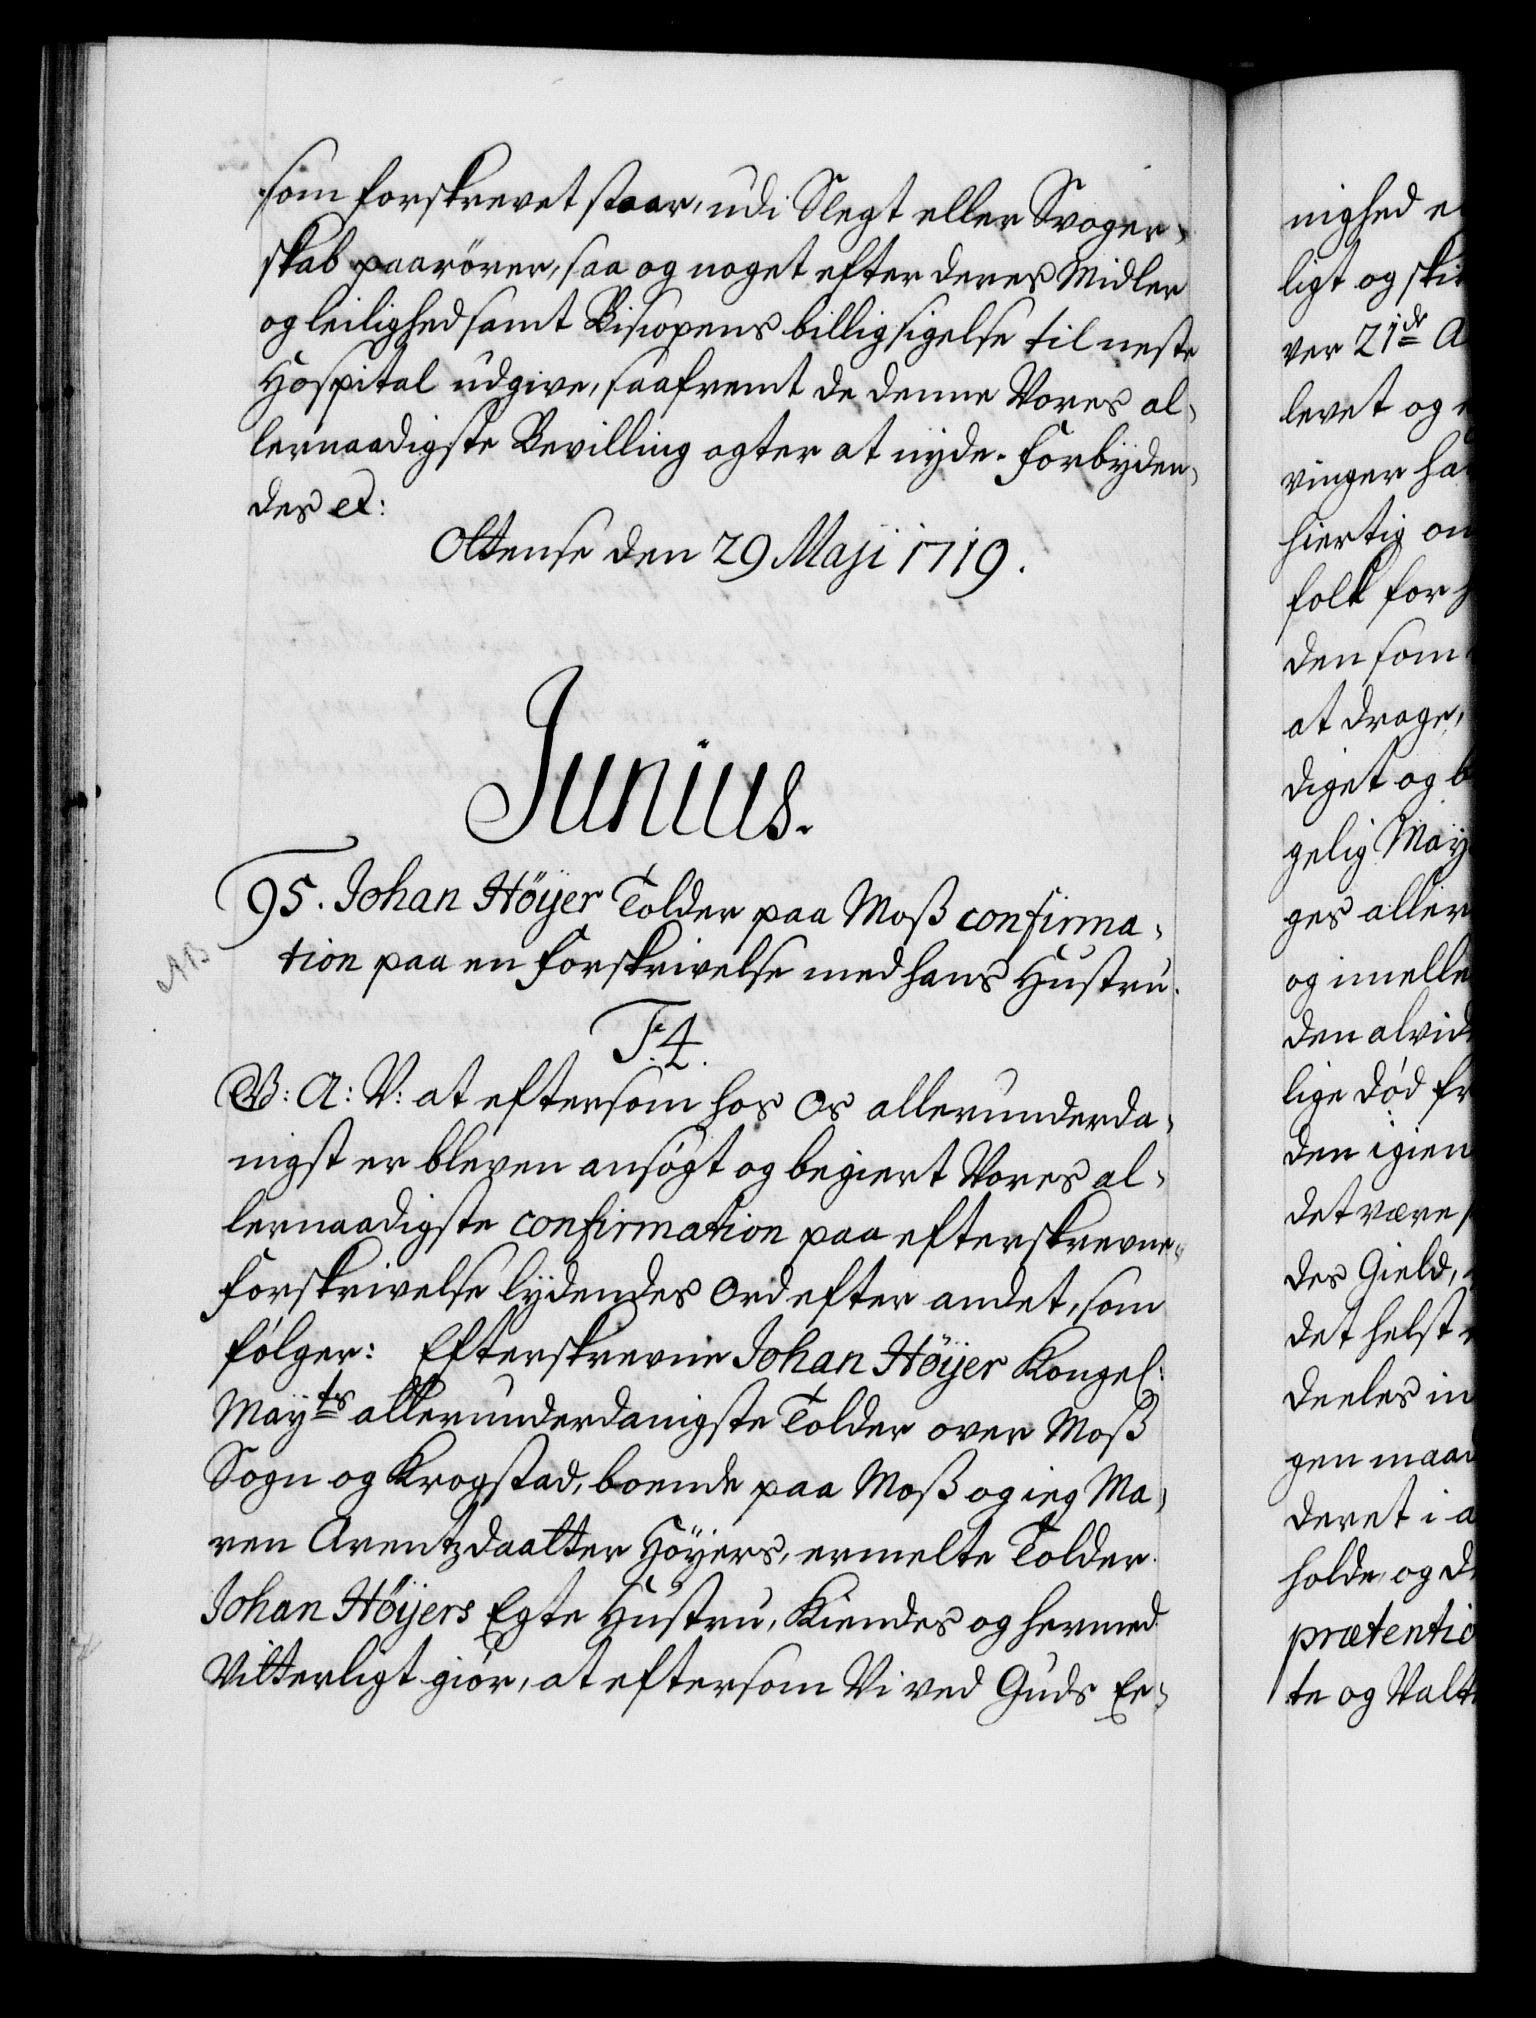 som forskrevet staar, udi Slegt eller Svoger-
skab paarörer, saa og noget efter deres Midler
og leilighed samt Bisiopens billigsigelse til neste
Hospital udgive, saafremt de denne Vores al-
lernaadigste Bevilling agter at nyde. Forbyden-
des et:
Ottense den 29 Maji 1719.
Junius.
95. Johan Höÿer Tolder paa Moß confirma-
tion paa en Forskrivelse med hans Hustru.
F. 4.
V: A: V: at eftersom hos Os allerunderda-
nigst er bleven ansögt og begiert Vores al-
lernaadigste confirmation paa efterskrevne
Forskrivelse lydendes Ord efter andet, som
følger: Efterskrevne Johan Höÿer Kongel:
Mayts allerunderdanigste Tolder over Moß
Sogn og Krogstad, boende paa Moß og ieg Ma-
ren Arentzdaatter Höyers, ermelte Tolder
Johan Höÿers Egte Hustru, Kiendes og hermed
Vitterligt giör, at eftersom Vi ved Guds Ee-
nighed e
ligt og ski
ver 21de A
levet og
vinger ha
hiertig om
folk for h
den som
at drage,
diget og b
gelig May
ges aller
og imelle
den alvid
lige Død fr
den igien
det være s
des Gield,
det helst
deeles in
gen maad
deret i a
holde og d
prætentio
te og Valt